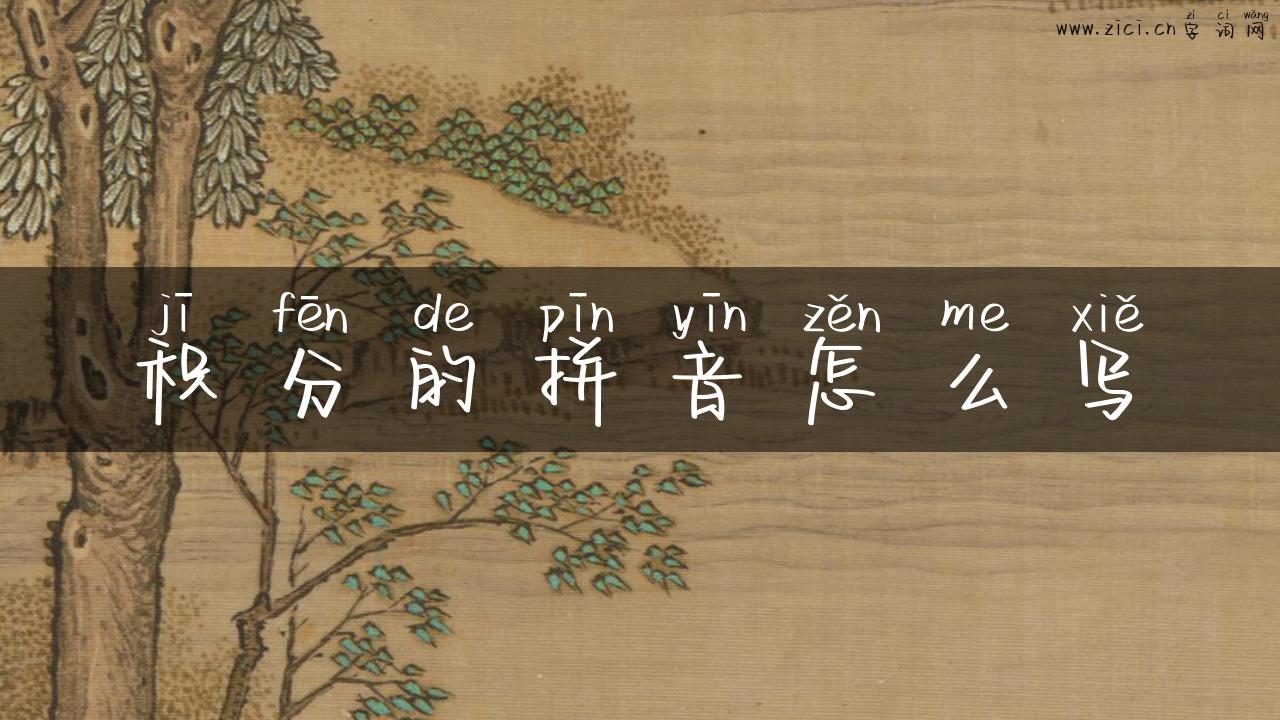 zì cí wǎng
www.zici.cn 字词网
jī fēn de pīn yīn zěn me xiě
积分的拼音怎么写